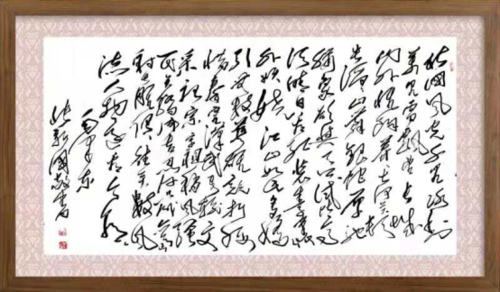 北国风光千里冰封
万里雪飘望长城
内外惟余莽莽大河上下顿
失滔滔山舞银蛇原驰
蜡象欲与天公试比高
须晴日看红装素裹分
外妖娆江山如此多娇
引无数英雄竞折腰
惜秦皇汉武略输文
采唐宗宋祖稍逊风骚
天骄成吉思汗只识弯
射雕俱往矣数风
流人物还看今朝
毛泽东